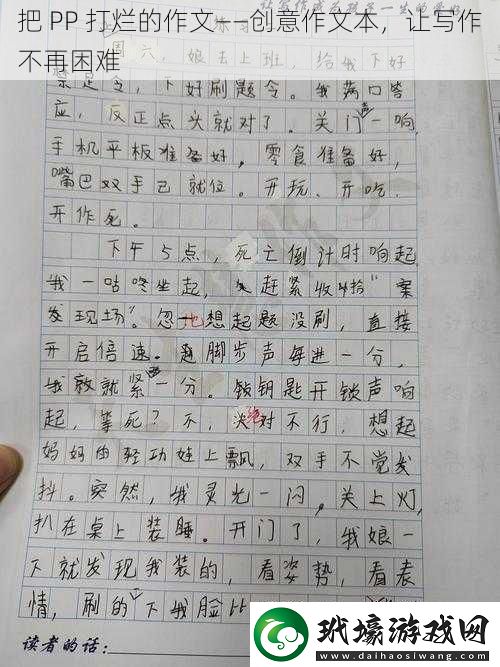 把 PP 打烂的作文——创意作文本，让写作
不再困难
周六，娘去上班，给我下好
禁足令，下好刷题令。我满口答
应，反正点头就对了。关门声一响，
手机平板准备好，零食准备好，
嘴巴双手已就位。开玩、开吃、
开作死。
下午5点，死亡倒计时响起，
我一咕咚坐起，赶紧收拾"案
发现场"。忽地想起题没刷，直接
开启倍速。脚步声每进一分，
我就紧一分。锁钥匙开锁声响
起，等死？不，绝对不行，想起
妈妈的轻功娃上飘，双手不觉发
抖。突然，我灵光一闪，关上灯，
扒在桌上装睡。开门了，我娘一
下就发现我装的，看姿势，看表
情，刷的一下我脸
读者的话：
玳壕游戏网
www.daihaosiwang.com